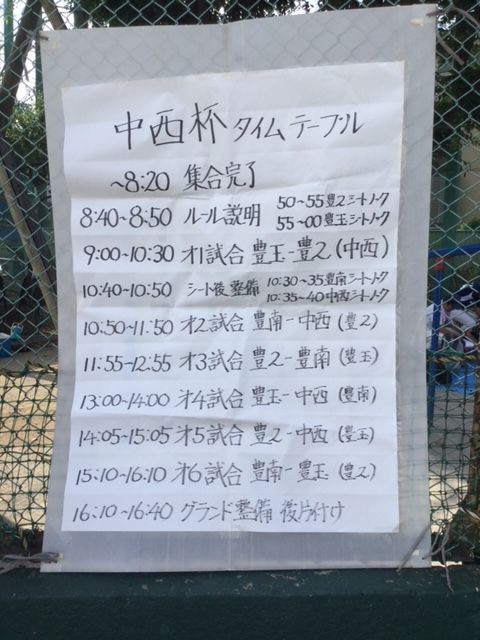 中西杯 タイムテーブル
~8:20 集合完了
8:40~8:50 ルール説明 50~55豊2シートノック
55~00豊玉シートノック
9:00~10:30 才1試合 豊玉-豊2(中西)
10:40~10:50 シート後整備 10:30~35豊南シートノック
10:35~40中西シートノック
10:50~11:50 才2試合 豊南-中西(豊2)
11:55~12:55 才3試合 豊2-豊南(豊玉)
13:00~14:00 才4試合 豊玉-中西(豊南)
14:05~15:05 才5試合 豊2-中西(豊玉)
15:10~16:10 才6試合 豊南-豊玉(豊2)
16:10~16:40 グランド整備 後片付け